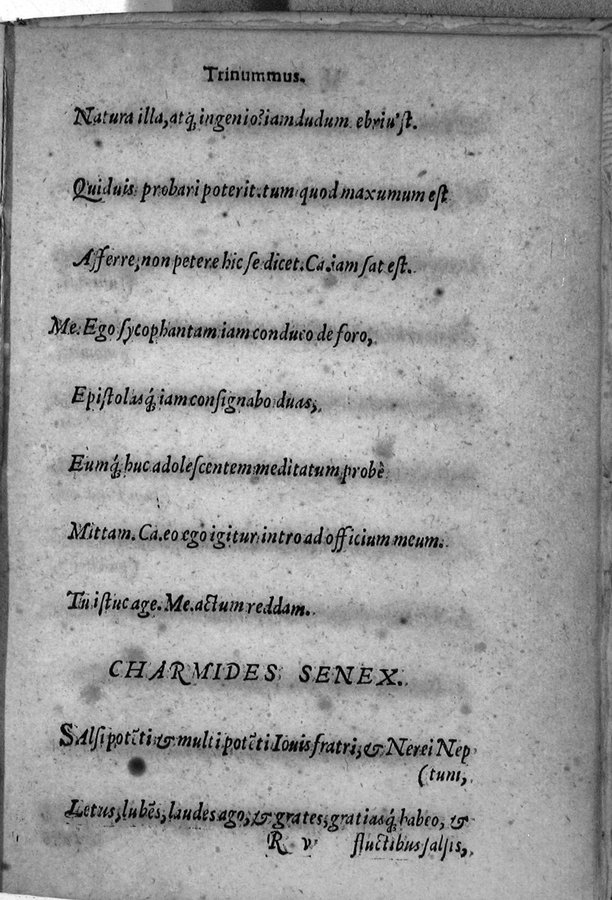 Trinummus.
Natura illa, atq; ingenio? iamdudum ebriu'st.
Quiduis probari poterit. tum quod maxumum est
Afferre, non petere hic se dicet. Ca. iam sat est.
Me. Ego sycophantam iam conduco de foro,
Epistolasq́; iam consignabo duas,
Eumq́; huc adolescentem meditatum probè
Mittam. Ca. eo ego igitur intro ad officium meum.
Tu istuc age. Me. actum reddam.
CHARMIDES SENEX.
SAlsipotẽti & multipotẽti Iouis fratri, & Nerei Nep
(tuni,
Letus, lubẽs, laudes ago, & grates, gratiasq́; habeo, &
R v fluctibus salsis,